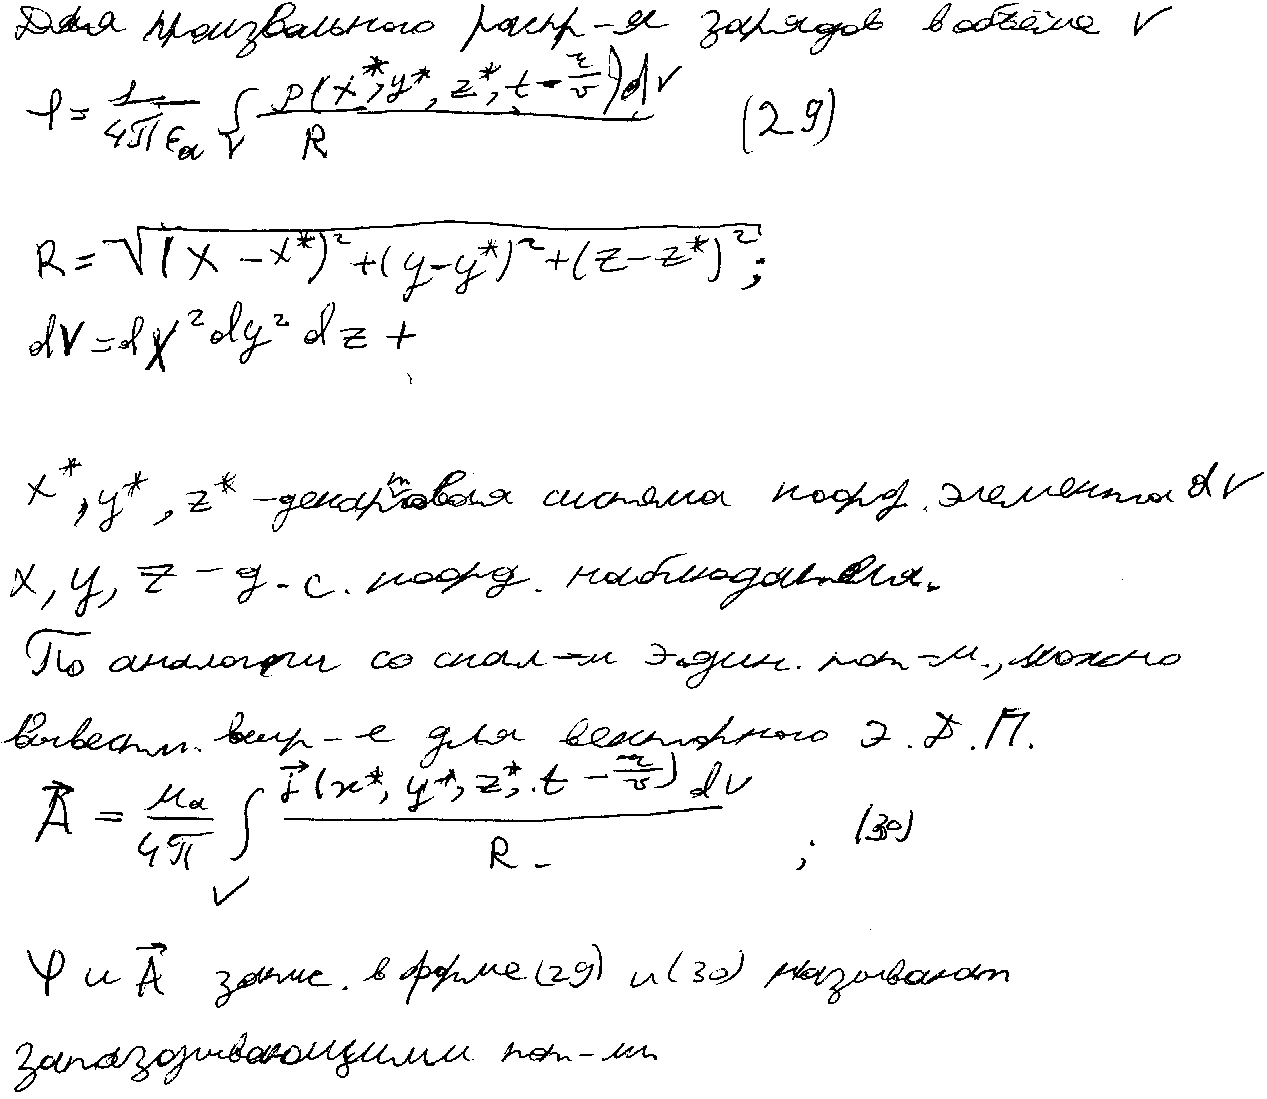 Для произвольного распр-я зарядов в объёме V
φ = 1/(4πεa) ∫V ρ(x*, y*, z*, t - r/v)dV / R (29)
R = √((x - x*)² + (y - y*)² + (z - z*)²);
dV = dx² dy² dz +
x*, y*, z* - декартовая система коорд. элемента dV
x, y, z - д. с. коорд. наблюдателя.
По аналогии со скал-м э.дин. пот-м., можно
вывести. выр-е для векторного Э.Д.П.
A⃗ = μa/4π ∫V j⃗(x*, y*, z*, t - r/v) dV / R ; (30)
φ и A⃗ запис. в форме (29) и (30) называют
запаздывающими пот-ми